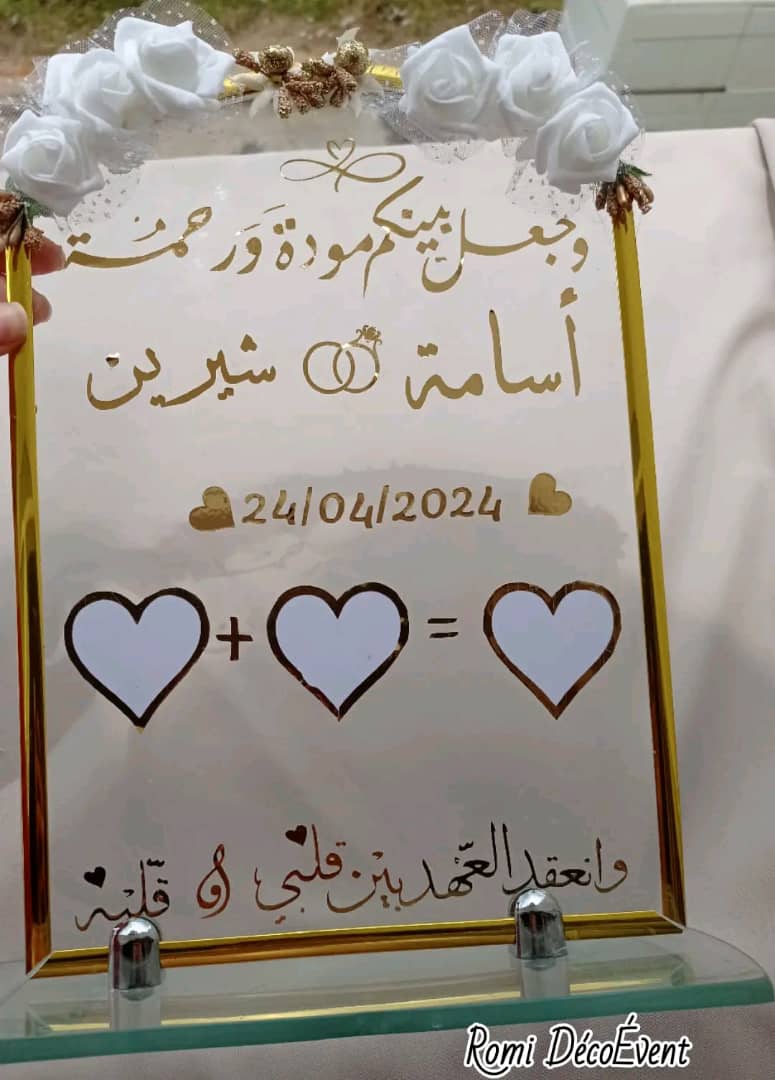 وجعل بينكم مودة وَرحمُة
أسامة شيرين
24/04/2024
+ =
وانعقد العهد بين قلبي و قلبه
Romi DécoÉvent